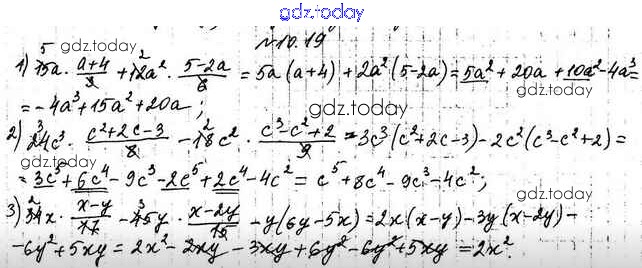 gdz.today
№10.19
1) 15a · (a+4)/3 + 12a² · (5-2a)/6 = 5a(a+4) + 2a²(5-2a) = 5a² + 20a + 10a² - 4a³ =
= -4a³ + 15a² + 20a;
2) 24c³ · (c²+2c-3)/8 - 18c² · (c³-c²+2)/9 = 3c³(c²+2c-3) - 2c²(c³-c²+2) =
= 3c⁵ + 6c⁴ - 9c³ - 2c⁵ + 2c⁴ - 4c² = c⁵ + 8c⁴ - 9c³ - 4c²;
3) 34x · (x-y)/17 - 45y · (x-2y)/15 - y(6y-5x) = 2x(x-y) - 3y(x-2y) -
- 6y² + 5xy = 2x² - 2xy - 3xy + 6y² - 6y² + 5xy = 2x².